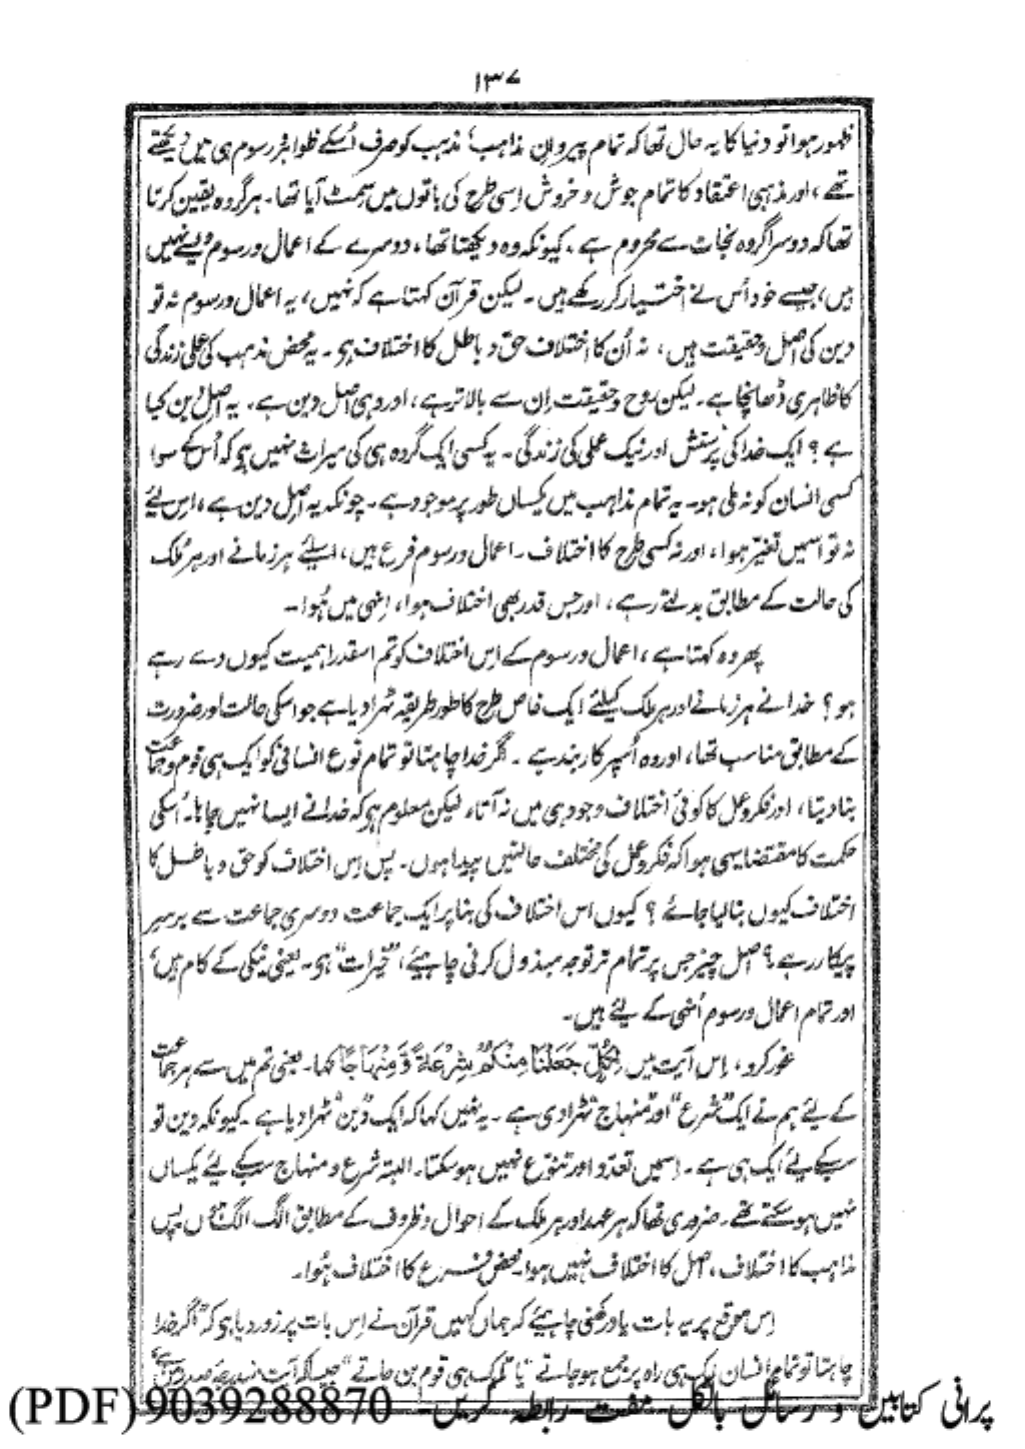 ۱۳۷
ظہور ہوا تو دنیا کا یہ حال تھا کہ تمام پیروانِ مذاہب، مذہب کو صرف اُسکے ظواہر و رسوم ہی میں دیکھتے
تھے، اور مذہبی اعتقاد کا تمام جوش و خروش اِسی طرح کی باتوں میں سمٹ آیا تھا۔ ہر گروہ یقین کرتا
تھا کہ دوسرا گروہ نجات سے محروم ہے۔ کیونکہ وہ دیکھتا تھا، دوسرے کے اعمال و رسوم ویسے نہیں
ہیں، جیسے خود اُس نے اختیار کر رکھے ہیں۔ لیکن قرآن کہتا ہے کہ نہیں، یہ اعمال و رسوم نہ تو
دین کی اصل و حقیقت ہیں، نہ اُن کا اختلاف حق و باطل کا اختلاف ہی۔ یہ محض مذہب کی عملی زندگی
کا ظاہری ڈھانچا ہے۔ لیکن روح و حقیقت اِن سے بالاتر ہے، اور وہی اصل دین ہے۔ یہ اصل دین کیا
ہے؟ ایک خدا کی پرستش اور نیک عملی کی زندگی۔ یہ کسی ایک گروہ ہی کی میراث نہیں ہی کہ اُس کے سوا
کسی انسان کو نہ ملی ہو۔ یہ تمام مذاہب میں یکساں طور پر موجود ہے۔ چونکہ یہ اصل دین ہے، اِس لیے
نہ تو اسمیں تغیر ہوا، اور نہ کسی طرح کا اختلاف۔ اعمال و رسوم فرع ہیں، اسلیے ہر زمانے اور ہر ملک
کی حالت کے مطابق بدلتے رہے، اور جس قدر بھی اختلاف ہوا، اِنہی میں ہُوا۔
پھر وہ کہتا ہے، اعمال و رسوم کے اِس اختلاف کو تم اسقدر اہمیت کیوں دے رہے
ہو؟ خدا نے ہر زمانے اور ہر ملک کیلئے ایک خاص طرح کا طور طریقہ ٹھرا دیا ہے جو اسکی حالت اور ضرورت
کے مطابق مناسب تھا، اور وہ اُسپر کاربند ہے۔ اگر خدا چاہتا تو تمام نوع انسانی کو ایک ہی قوم و جماعت
بنا دیتا، اور فکر و عمل کا کوئی اختلاف وجود ہی میں نہ آتا، لیکن معلوم ہی کہ خدا نے ایسا نہیں چاہا۔ اُسکی
حکمت کا مقتضا یہی ہوا کہ فکر و عمل کی مختلف حالتیں پیدا ہوں۔ پس اِس اختلاف کو حق و باطل کا
اختلاف کیوں بنا لیا جائے؟ کیوں اس اختلاف کی بنا پر ایک جماعت دوسری جماعت سے برسرِ
پیکار رہے؟ اصل چیز جس پر تمام تر توجہ مبذول کرنی چاہیئے، "خیرات" ہی۔ یعنی نیکی کے کام ہیں،
اور تمام اعمال و رسوم اُنہی کے لیئے ہیں۔
غور کرو، اِس آیت میں لِکُلٍّ جَعَلْنَا مِنْکُمْ شِرْعَةً وَّمِنْهَاجًا کہا۔ یعنی تم میں سے ہر جماعت
کے لیئے ہم نے ایک "شرع" اور "منہاج" ٹھرا دی ہے۔ یہ نہیں کہا کہ ایک "دین" ٹھرا دیا ہے۔ کیونکہ دین تو
سبکے لیئے ایک ہی ہے۔ اِسمیں تعدّد اور تنوّع نہیں ہوسکتا۔ البتہ شرع و منہاج سبکے لیئے یکساں
نہیں ہوسکتے تھے۔ ضروری تھا کہ ہر عہد اور ہر ملک کے احوال و ظروف کے مطابق الگ الگ ہوں۔ پس
مذاہب کا اختلاف، اصل کا اختلاف نہیں ہوا۔ محض فرع کا اختلاف ہُوا۔
اِس موقع پر یہ بات یاد رکھنی چاہیئے کہ جہاں کہیں قرآن نے اِس بات پر زور دیا ہی کہ "اگر خدا
چاہتا تو تمام انسان ایک ہی راہ پر جمع ہوجاتے" یا "ایک ہی قوم بن جاتے" جیسا کہ آیت مندرجۂ صدر میں ہے،
پرانی کتابیں و رسائل بالکل مفت رابطہ کریں۔ 9039288870 (PDF)